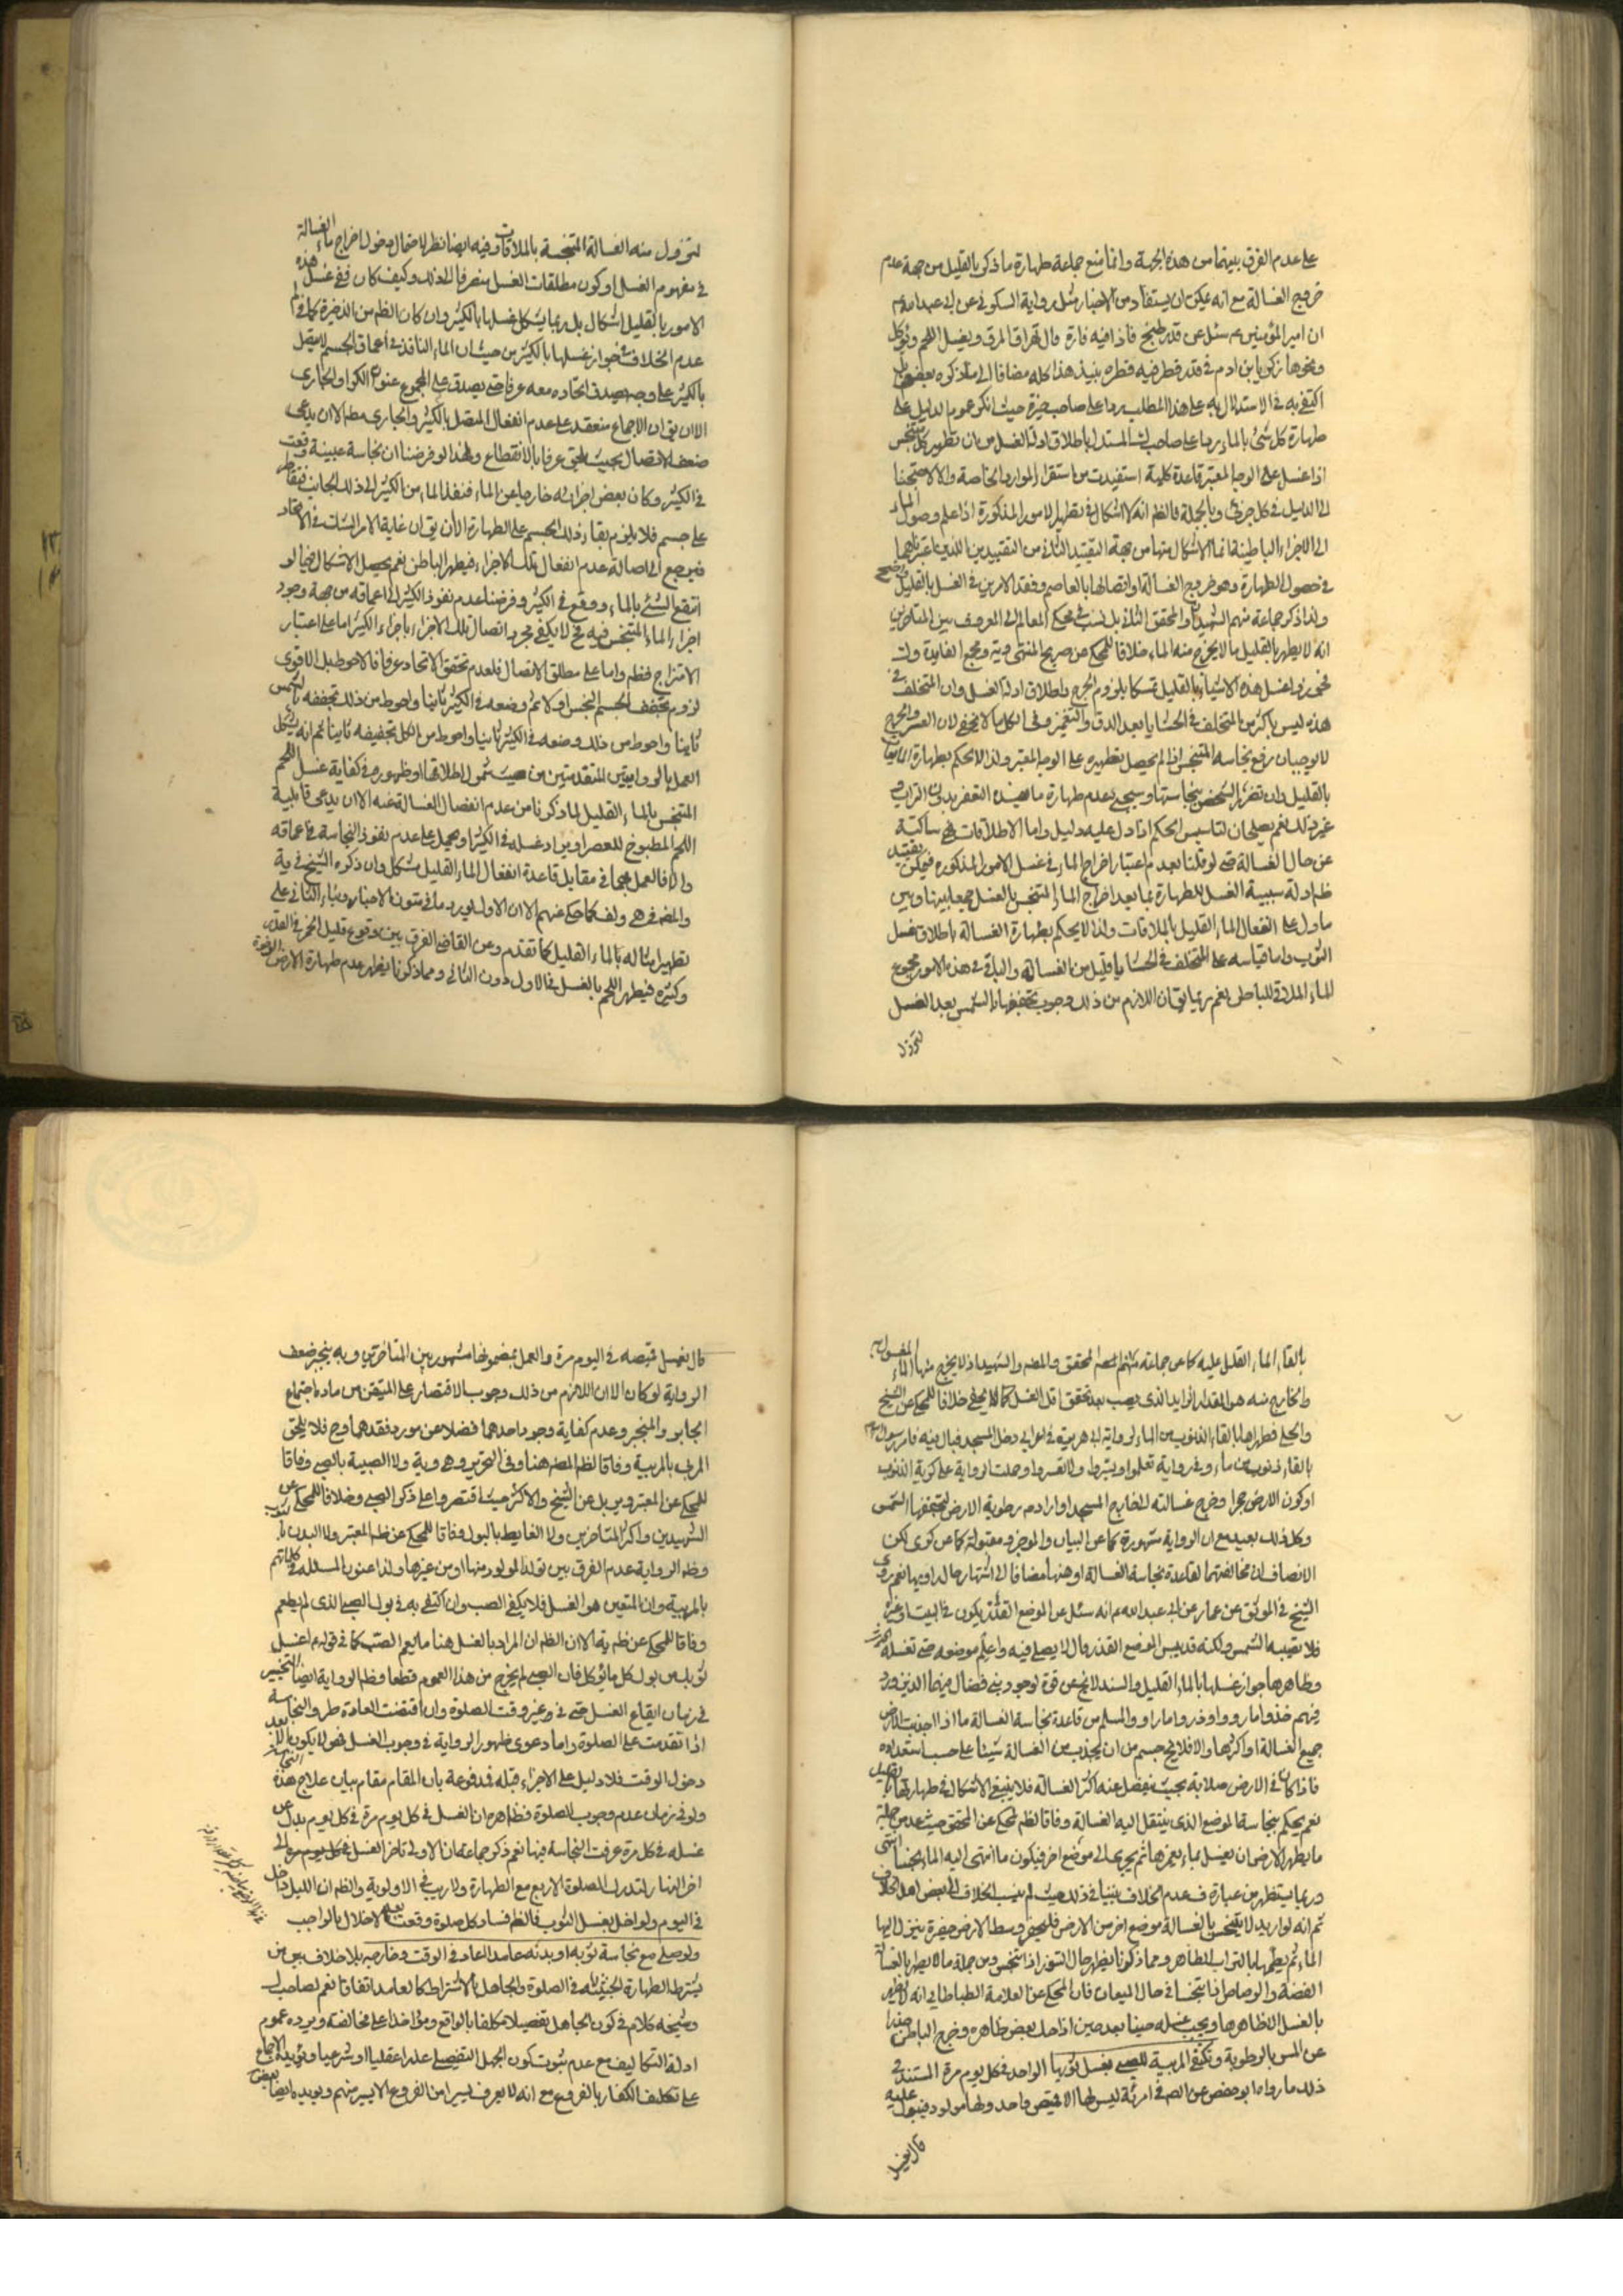 على عدم الفرق بينهما من هذه الجهة وانما منع جماعة طهارة ما ذكر بالقليل من جهة عدم
خروج الغسالة مع انه يمكن ان يستفاد من الاخبار مثل رواية السكوني عن ابي عبد الله ع
ان امير المؤمنين ع سئل عن قدر طبخ فاذا فيه فارة قال تهراق المرق ويغسل اللحم ويؤكل
ونحوها زكريا بن ادم في قدر قطر فيه قطرة نبيذ هذا كله مضافا الى ما ذكره بعض بل
اكتفي به في الاستدلال به على هذا المطلب ردا على صاحب حيث انكر عموم الدليل على
طهارة كل شئ بالماء ردا على صاحب المستدل باطلاق ادلة الغسل من ان تطهير كل متنجس
اذا غسل على الوجه المعتبر قاعدة كلية استفيدت من استقراء الموارد الخاصة والا لاحتجنا
الى الدليل في كل جزئي وبالجملة فالظم انه لا اشكال في تطهير الامور المذكورة اذا علم وصول الماء
الى الاجزاء الباطنية انما الاشكال منها من جهة التقييد الثاني من التقييدين اللذين اعتبرناهما
في حصول الطهارة وهو خروج الغسالة او اتصالها بالعاصم وفقد الامرين في الغسل بالقليل واضح
ولذا ذكر جماعة منهم الشهيدان والمحقق الثاني بل نسب في محكي المعالم الى المعروف بين المتاخرين
انه لا يطهر بالقليل ما لا يخرج منه الماء خلافا للمحكي عن صريح المنتهى ومجمع الفايدة
فجوزوا غسل هذه الاشياء بالقليل تمسكا بلزوم الحرج واطلاق ادلة الغسل وان المتخلف في
هذه ليس باكثر من المتخلف في الحشايا بعد الدق والتغميز وفي الكل ما لا يخفى لان العسر والحرج
لا يوجبان رفع نجاسة المتنجس اذا لم يحصل تطهيره على الوجه المعتبر ولذا لا يحكم بطهارة
بالقليل وان تضرر الشخص بنجاستها وسيجئ بعدم طهارة ما التعفير بدون التراب و
غير ذلك نعم يصلحان لتاسيس الحكم اذا دل عليه دليل واما الاطلاقات فهي ساكتة
عن حال الغسالة حتى لو قلنا بعدم اعتبار اخراج الماء في غسل الامور المذكورة فيمكن تقييد
ظم ادلة سببية الغسل للطهارة بما بعد اخراج الماء المتنجس بالغسل جمعا بينها وبين
ما دل على انفعال الماء القليل بالملاقات ولذا لا يحكم بطهارة الغسالة باطلاق غسل
الثوب واما قياسه على المتخلف في الحشايا فقليل من الغسالة والباقي في هذه الامور مجموع
الماء الملاقي للباطن نعم ربما يق ان اللازم من ذلك وجوب تجفيفها بالشمس بعد الغسل
لتزول
لتزول منه الغسالة المتنجسة بالملاقات وفيه ايضا نظر لاحتمال دخول اخراج ماء الغسالة
في مفهوم الغسل او كون مطلقات الغسل منصرفا الى ذلك وكيف كان ففي غسل هذه
الامور بالقليل اشكال بل ربما يشكل غسلها بالكثير وان كان الظم من الذخيرة كما في
عدم الخلاف في جواز غسلها بالكثير من حيث ان الماء النافذ في اعماق الجسم لا يتصل
بالكثير على وجه يصدق اتحاده معه عرفا حتى يصدق على المجموع عنوان الكر او الجاري
الا ان يق ان الاجماع منعقد على عدم انفعال المتصل بالكثير والجاري مطم الا ان يدعى
ضعف الاتصال بحيث يلحق عرفا بالانقطاع ولهذا لو فرضنا ان نجاسة عينية وقعت
في الكثير وكان بعض اجزائه خارجا عن الماء فنفذ الماء من الكثير الى ذلك الجانب فتقاطر
على جسم فلا يلزم بقاء ذلك الجسم على الطهارة الا ان يق ان غاية الامر الشك في الاتحاد
فيرجع الى اصالة عدم انفعال تلك الاجزاء فيطهر الباطن نعم يحصل الاشكال فيما لو
انتقع الشئ بالماء ووقع في الكثير وفرضنا عدم نفوذ الكثير الى اعماقه من جهة وجود
اجزاء الماء المتنجس فيه فح لا يكفي مجرد اتصال تلك الاجزاء باجزاء الكثير اما على اعتبار
الامتزاج فظم واما على مطلق الاتصال فلعدم تحقق الاتحاد عرفا فالاحوط بل الاقوى
لزوم تجفيف الجسم النجس اولا ثم وضعه في الكثير ثانيا واحوط من ذلك تجفيفه بالشمس
ثانيا واحوط من ذلك وضعه في الكثير ثانيا واحوط من الكل تجفيفه ثانيا ثم انه يشكل
العمل بالروايتين المتقدمتين من حيث شمول اطلاقها او ظهوره في كفاية غسل اللحم
المتنجس بالماء القليل لما ذكرنا من عدم انفصال الغسالة عنه الا ان يدعى قابلية
اللحم المطبوخ للعصر او يراد غسله في الكثير او يحمل على عدم نفوذ النجاسة في اعماقه
والا فالعمل بهما في مقابل قاعدة انفعال الماء القليل مشكل وان ذكره الشيخ في ية
والمصنف في هى ولف كما حكي عنهم الا ان الاول لم يرد ما في متون الاخبار وبناء الثاني على
تطهير امثاله بالماء القليل كما تقدم وعن القاضي الفرق بين وقوع قليل الخمر في القدر
وكثيره فيطهر اللحم بالغسل في الاول دون الثاني ومما ذكرنا يظهر عدم طهارة الارض الرخوة
بالقاء الماء القليل عليه كما عن جماعة منهم المحقق والمصنف والشهيد اذ لا يخرج منها الماء المغسول به
والخارج منه هو المقدار الزايد الذي يصب بعد تحقق اقل الغسل كما لا يخفى خلافا للمحكي عن الشيخ
والحلي فطهراها بالقاء الذنوب من الماء لرواية ابي هريرة في اعرابي دخل المسجد فبال فيه فامر رسول الله
بالقاء ذنوب من ماء وفي رواية تعلموا ويسروا ولا تعسروا وحملت الرواية على كرية الذنوب
او كون الارض حجرا وخرج غسالته الى خارج المسجد او ارادة رطوبة الارض لتجففها الشمس
وكل ذلك بعيد مع ان الرواية مشهورة كما عن البيان والموجز ومقبولة كما عن كرى لكن
الانصاف ان مخالفتها لقاعدة نجاسة الغسالة اوهنها مضافا الى اشتهار حال راويها نعم روى
الشيخ في الموثق عن عمار عن ابي عبد الله ع انه سئل عن الموضع القذر يكون في البيت او غيره
فلا تصيبه الشمس ولكنه قد يبس الموضع القذر قال لا يصلى فيه واعلم موضعه حتى تغسله
وظاهرها جواز غسلها بالماء القليل والسند لا يخ عن قوة لوجود بني فضال فيها الذين ورد
فيهم خذوا ما رووا وذروا ما راوا والمسلم من قاعدة نجاسة الغسالة ما اذا اجذبت الارض
جميع الغسالة او اكثرها والا فلا يخ جسم من ان يجذب من الغسالة شيئا على حسب استعداده
فاذا كان في الارض صلابة بحيث ينفصل عنه اكثر الغسالة فلا ينبغي الاشكال في طهارتها بالقليل
نعم يحكم بنجاسة الموضع الذي ينتقل اليه الغسالة وفاقا لظم المحكي عن المحقق حيث عد من جملة
ما يطهر الارض ان يغسل بماء يغمرها ثم يجري الى موضع اخر فيكون ما انتهى اليه الماء نجسا انتهى
وربما يستظهر من عبارة ف عدم الخلاف بيننا في ذلك حيث لم ينسب الخلاف الا الى بعض اهل الخلاف
ثم انه لو اريد لا يتنجس بالغسالة موضع اخر من الارض فليحفر وسط الارض حفيرة ينزل اليها
الماء ثم يطمها بالتراب الطاهر ومما ذكرنا يظهر حال التنور اذا تنجس ومن جملة ما لا يطهر بالغسالة
الفضة والرصاص اذا تنجسا في حال الميعان فان المحكي عن العلامة الطباطبائي انه لا يطهر
بالغسل الا ظاهرها ويجب غسله حينا بعد حين اذا حك بعض ظاهره وخرج الباطن حذرا
عن المس بالرطوبة وتكفي المربية للصبي بغسل ثوبها الواحد في كل يوم مرة المستند في
ذلك ما رواه ابو حفص عن الصم في امرئة ليس لها الا قميص واحد ولها مولود فيبول عليه
قال تغسل
قال تغسل قميصه في اليوم مرة والعمل بمضمونها مشهور بين المتاخرين وبه ينجبر ضعف
الرواية لو كان الا ان اللازم من ذلك وجوب الاقتصار على المتيقن من مادة اجتماع
الجابر والمنجبر وعدم كفاية وجود احدهما فضلا عن مورد فقدهما وح فلا يلحق
المربي بالمربية وفاقا لظم المصنف هنا وفي التحرير وهى وية ولا الصبية بالصبي وفاقا
للمحكي عن المعتبر وير بل عن الشيخ والاكثر حيث اقتصروا على ذكر الصبي وخلافا للمحكي عن
الشهيدين واكثر المتاخرين ولا الغايط بالبول وفاقا للمحكي عن ظم المعتبر ولا البدن بالثوب
وظم الرواية عدم الفرق بين تولد المولود منها او من غيرها ولذا عنون المسئلة في كلماتهم
بالمربية وان المتعين هو الغسل فلا يكفي الصب وان اكتفي به في بول الصبي الذي لم يطعم
وفاقا للمحكي عن ظم ية الا ان الظم ان المراد بالغسل هنا ما يعم الصب كما في قوله ع اغسل
ثوبك من بول كل ما يؤكل فان الصبي لم يخرج من هذا العموم قطعا وظم الرواية ايضا التخيير
في زمان ايقاع الغسل حتى في غير وقت الصلوة وان اقتضت العادة طرو النجاسة
اذا تقدمت على الصلوة واما دعوى ظهور الرواية في وجوب الغسل فهو لا يكون الا بعد
دخول الوقت فلا دليل على الاجزاء قبله فمدفوعة بان المقام مقام بيان علاج هذه النجاسة
ولو في زمان عدم وجوب الصلوة فظاهره ان الغسل في كل يوم مرة في كل يوم بدل عن
غسله في كل مرة عرفت النجاسة فيها نعم ذكر جماعة ان الاولى تاخير الغسل الى
اخر النهار لتدرك الصلوة الاربع مع الطهارة ولا ريب في الاولوية والظم ان الليل داخل
في اليوم ولو اخل بغسل الثوب فالظم فساد كل صلوة وقعت بعد الاخلال بالواجب
ولو صلى مع نجاسة ثوبه او بدنه عامدا اعاد في الوقت وخارجه بلا خلاف بين من
يشترط الطهارة الخبثية في الصلوة والجاهل بالاشتراط كالعامد اتفاقا نعم لصاحب
وشيخه كلام في كون الجاهل تفصيلا مكلفا بالواقع ومؤاخذا على مخالفته ويرده عموم
ادلة التكاليف مع عدم ثبوت كون الجهل التفصيلي عذرا عقليا او شرعيا ويؤيده الاجماع
على تكليف الكفار بالفروع مع انه لا يعرف يسيرا من الفروع الا يسير منهم ويؤيده ايضا بعض